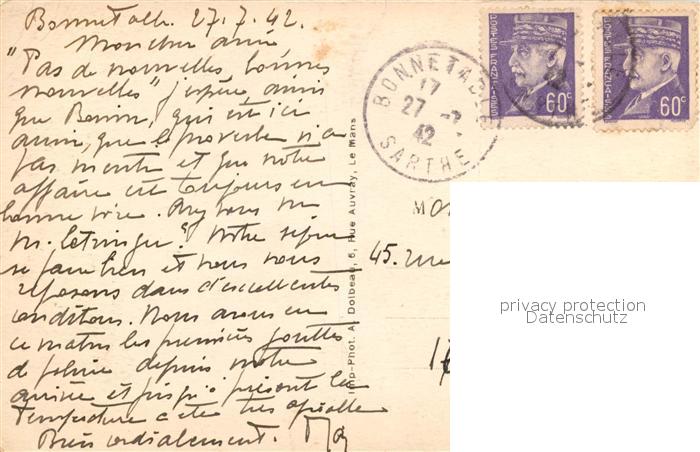 Bonnetable. 27.7.42.
Mon cher ami,
"Pas de nouvelles bonnes
nouvelles" j'espère, ainsi
que qui est ici
aussi, que le proverbe n'a
pas menti et que notre
affaire est toujours en
bonne voie. Avez vous vu
M. Notre séjour
se passe bien et nous nous
reposons dans d'excellentes
conditions. Nous avons eu
ce matin les premières gouttes
de pluie depuis notre
arrivée et jusqu'à présent la
température a été très agréable
Bien cordialement.
Imp-Phot. A. Dolbeau, 5, Rue Auvray, Le Mans
BONNETABLE
17
27 -7
42
SARTHE
POSTES FRANÇAISES
60c
POSTES FRANÇAISES
60c
45. rue
privacy protection
Datenschutz